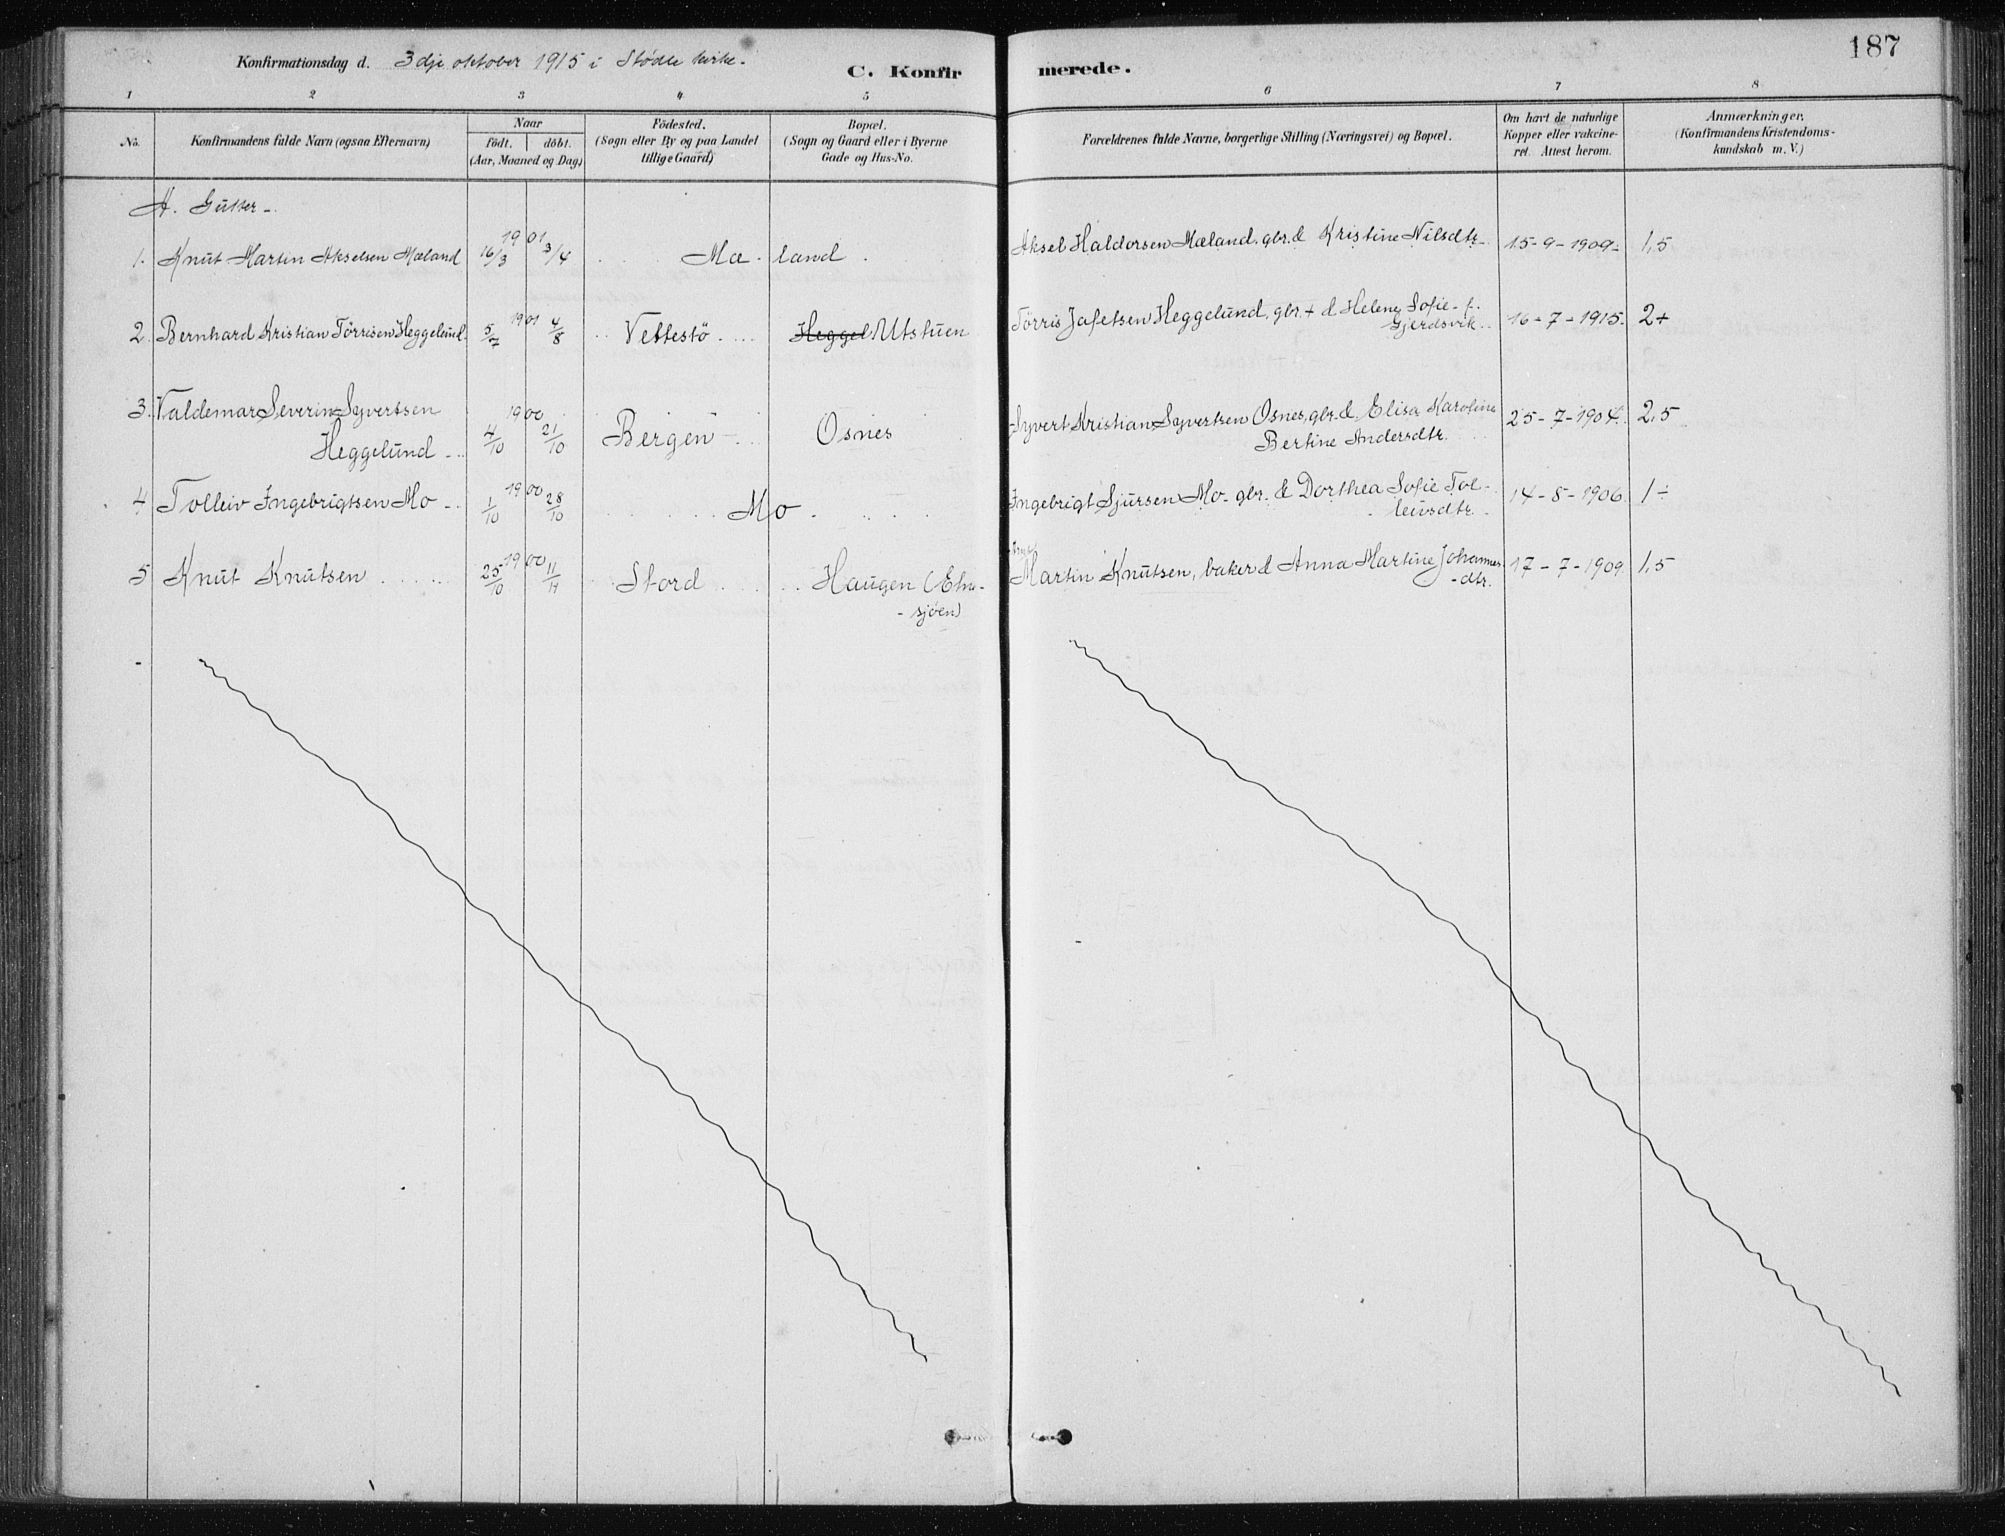 Konfirmationsdag d. 3dje oktober 1915 i Stødle kirke.
C. Konfirmerede.
187
1 2 3 4 5 6 7 8
No.
Konfirmandens fulde Navn (ogsaa Efternavn)
Naar
födt. döbt.
(Aar, Maaned og Dag)
Födested.
(Sogn eller By og paa Landet
tillige Gaard)
Bopæl.
(Sogn og Gaard eller i Byerne
Gade og Hus-No.
Forældrenes fulde Navne, borgerlige Stilling (Næringsvei) og Bopæl.
Om havt de naturlige
Kopper eller vakcine-
ret. Attest herom.
Anmærkninger.
(Konfirmandens Kristendoms-
kundskab m. V.)
A. Gutter -
1. Knut Martin Akselsen Mæland 1901 16/3 3/4 Mæland Aksel Haldorsen Mæland. gbr. & Kristine Nilsdtr. 15-9-1909 1,5
2. Bernhard Kristian Törrisen Heggelund. 1901 5/7 4/8 Vettestö Heggel Utstuen Törris Jafetsen Heggelund, gbr. + & Helene Sofie f.
Gjerdsvik 16-7-1915. 2+
3. Valdemar Severin Syvertsen
Heggelund 1900 4/10 21/10 Bergen Osnes Syvert Kristian Syvertsen Osnes, gbr. & Elisa Karoline
Bertine Andersdtr. 25-7-1904. 2,5
4. Tolleiv Ingebrigtsen Mo 1900 1/10 28/10 Mo Ingebrigt Sjursen Mo gbr. & Dorthea Sofie Tol-
leivsdtr. 14-8-1906. 1÷
5 Knut Knutsen 1900 25/10 11/11 Stord Haugen (Etne-
-sjøen) Martin Knutsen, baker & Anna Martine Johannes
-dtr. 17-7-1909. 1,5